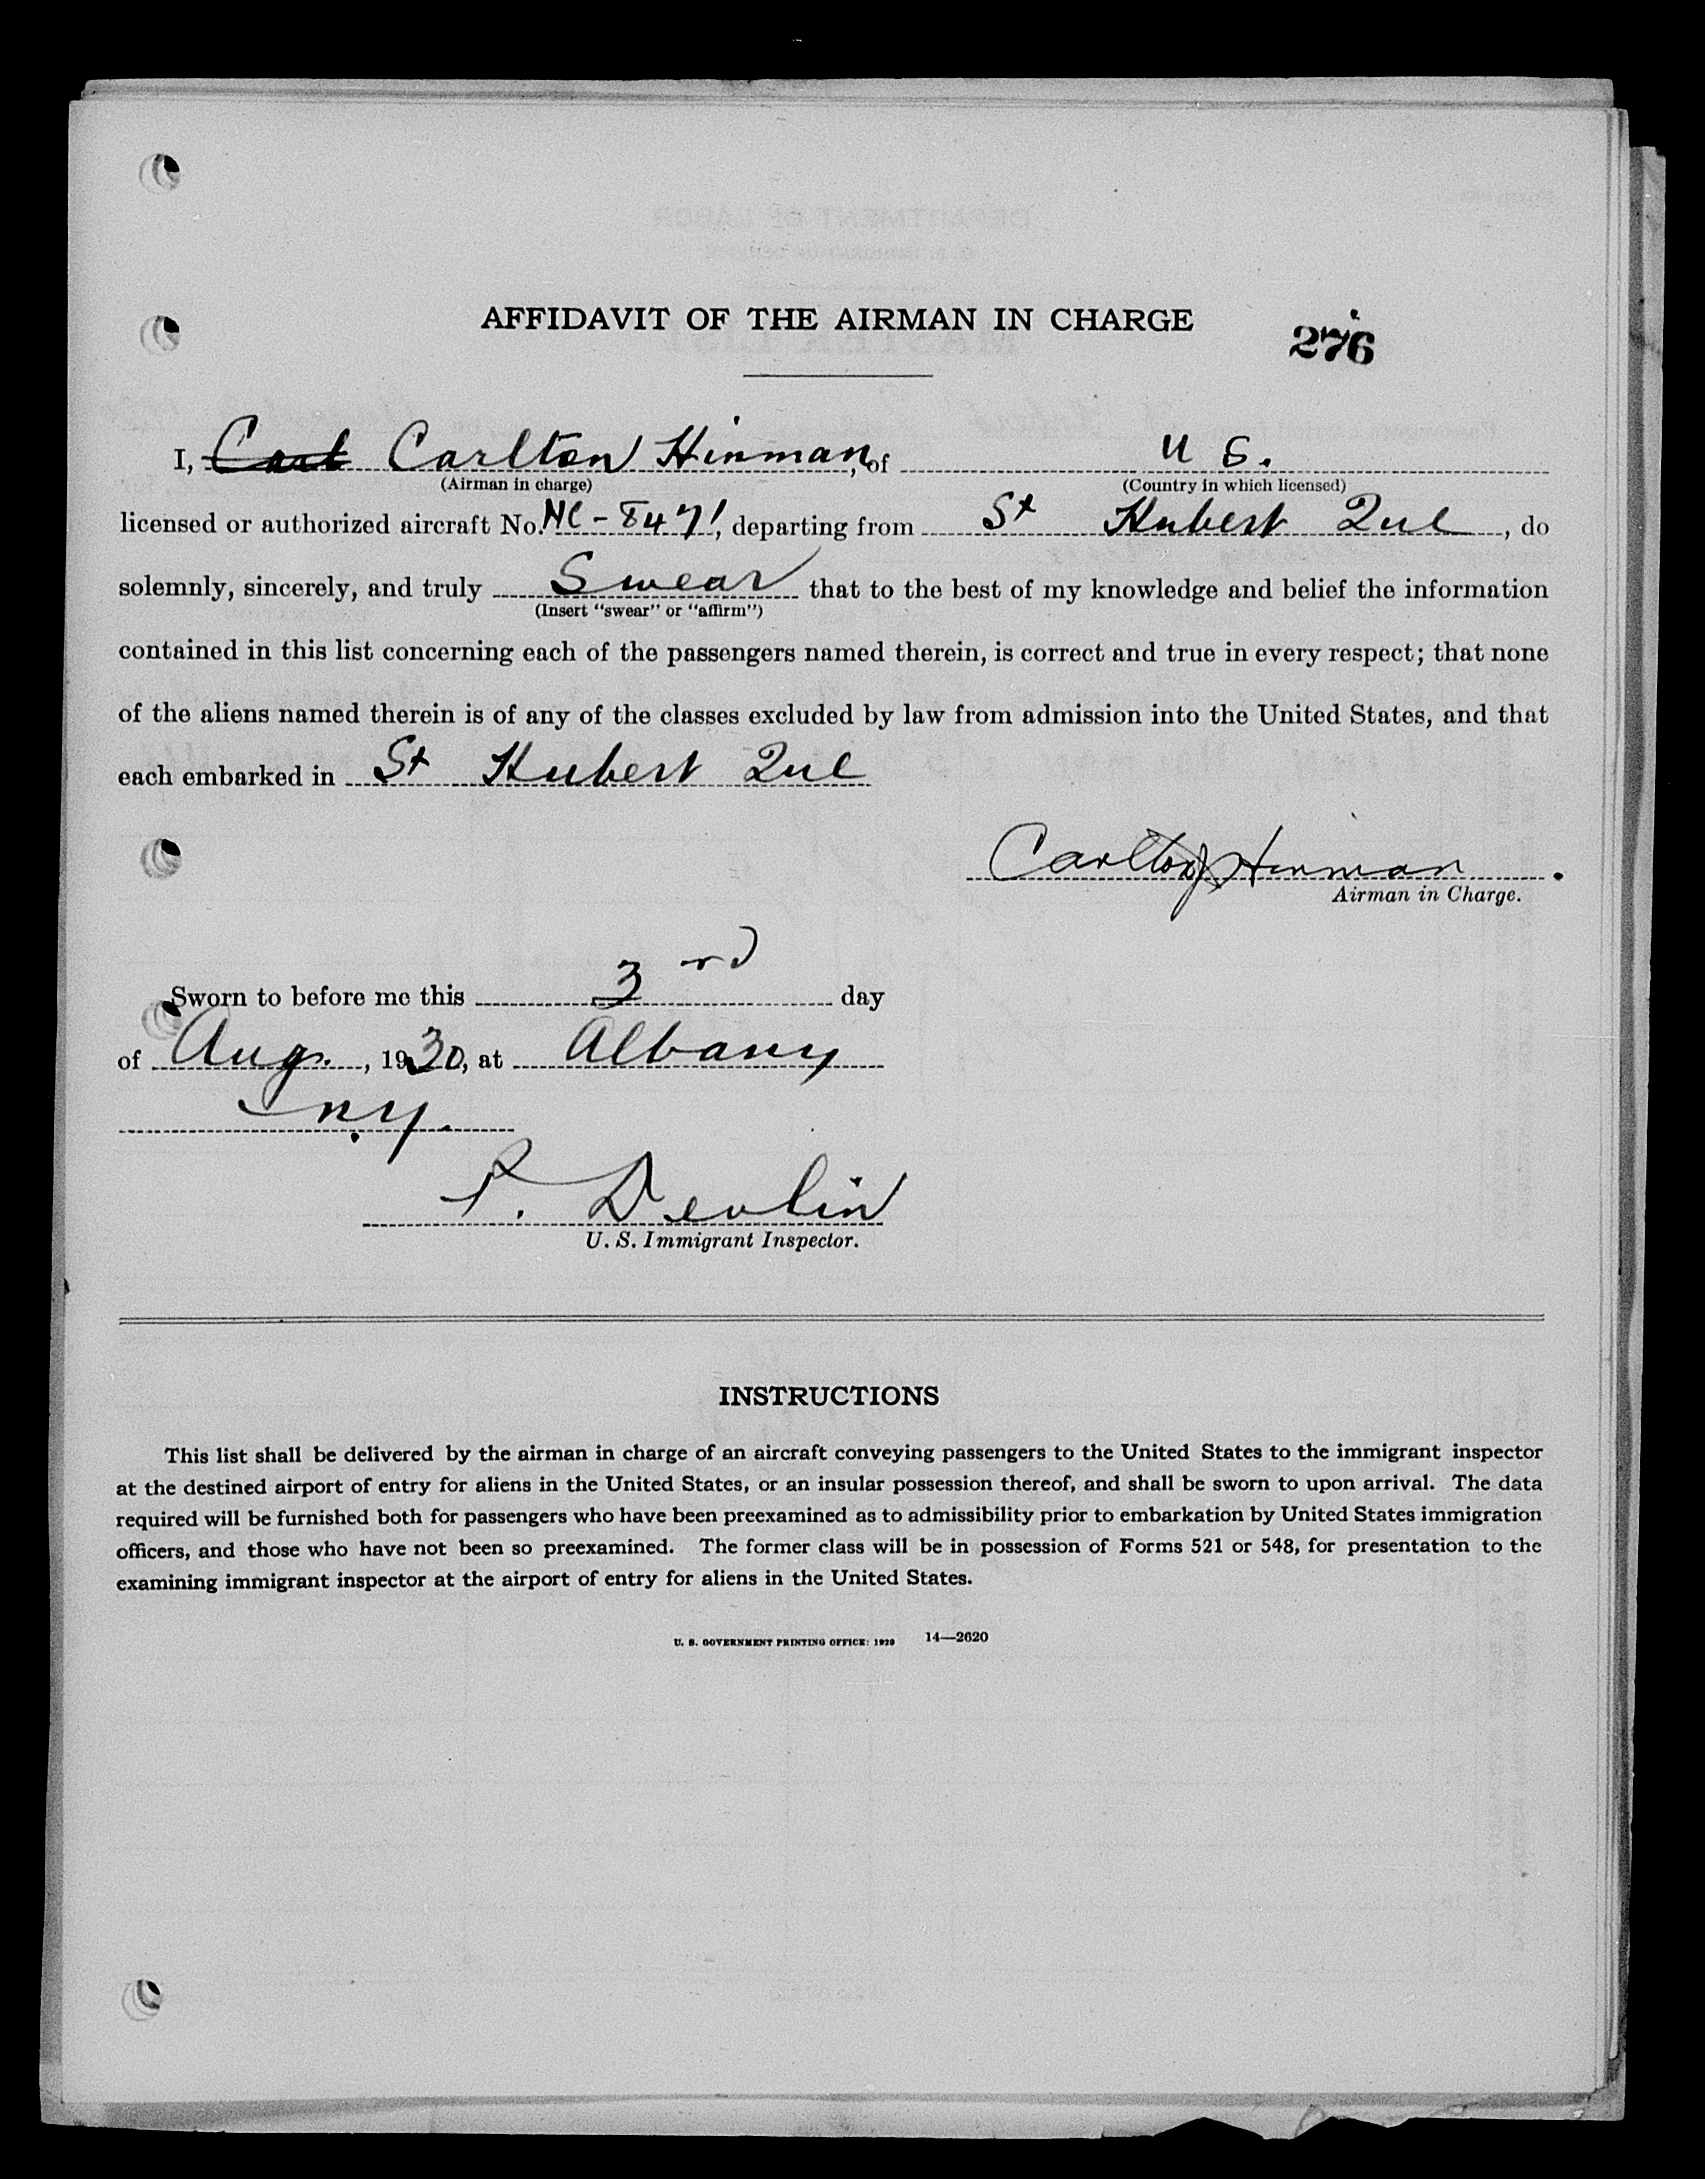 AFFIDAVIT OF THE AIRMAN IN CHARGE
276
I, Carl Carlton Hinman, of U S.
(Airman in charge) (Country in which licensed)
licensed or authorized aircraft No. NC-8471, departing from St Hubert Que, do
solemnly, sincerely, and truly Swear that to the best of my knowledge and belief the information
(Insert "swear" or "affirm")
contained in this list concerning each of the passengers named therein, is correct and true in every respect; that none
of the aliens named therein is of any of the classes excluded by law from admission into the United States, and that
each embarked in St Hubert Que
Carlton Hinman.
Airman in Charge.
Sworn to before me this 3rd day
of Aug., 1930, at Albany
N.Y.
P. Devlin
U. S. Immigrant Inspector.
INSTRUCTIONS
This list shall be delivered by the airman in charge of an aircraft conveying passengers to the United States to the immigrant inspector
at the destined airport of entry for aliens in the United States, or an insular possession thereof, and shall be sworn to upon arrival. The data
required will be furnished both for passengers who have been preexamined as to admissibility prior to embarkation by United States immigration
officers, and those who have not been so preexamined. The former class will be in possession of Forms 521 or 548, for presentation to the
examining immigrant inspector at the airport of entry for aliens in the United States.
U. S. GOVERNMENT PRINTING OFFICE: 1929 14—2620